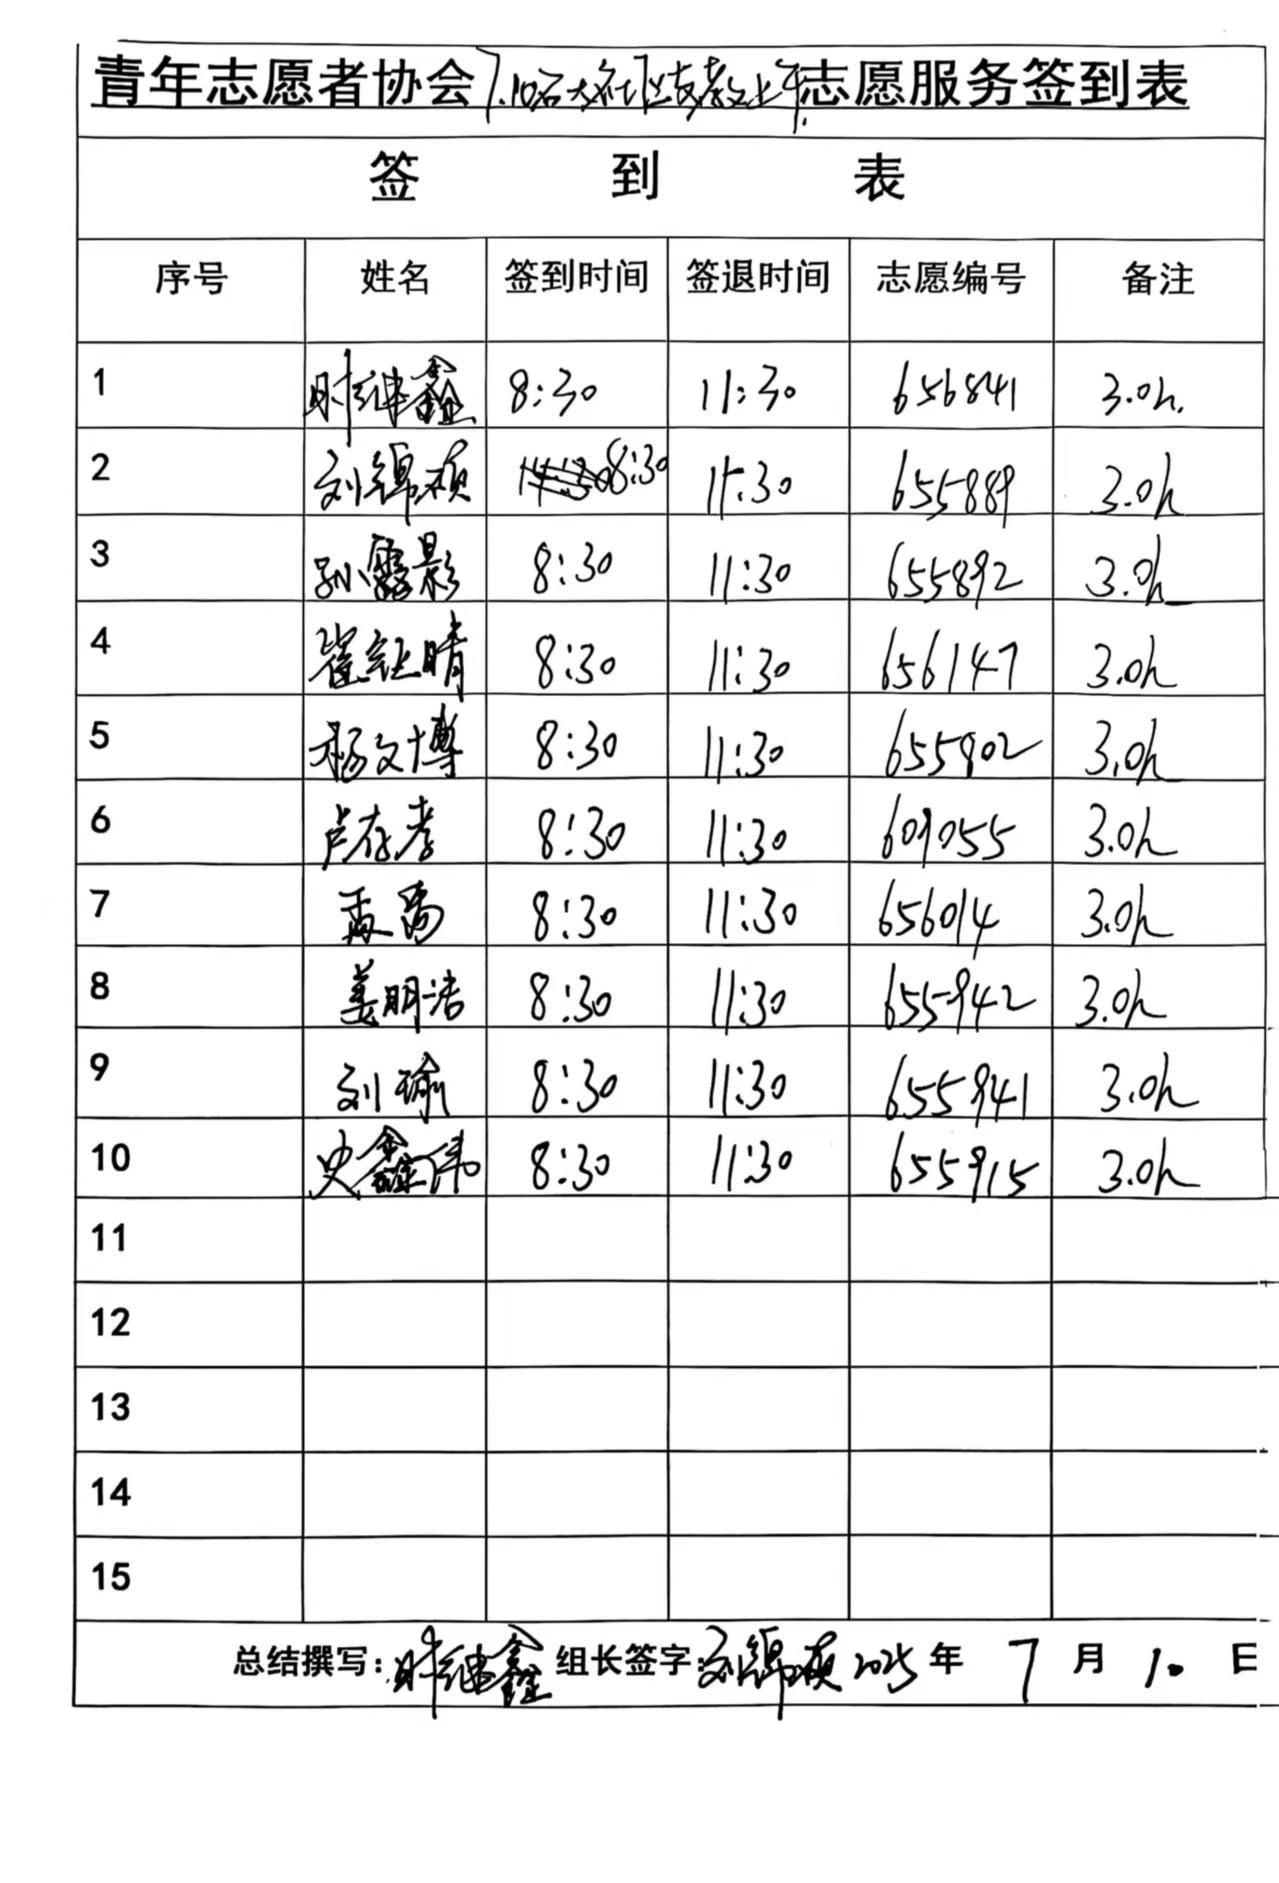 青年志愿者协会7.10石大社区支教上午志愿服务签到表
签 到 表
序号 姓名 签到时间 签退时间 志愿编号 备注
1 时继鑫 8:30 11:30 656841 3.0h.
2 刘锦硕 8:30 11:30 655889 3.0h
3 孙露影 8:30 11:30 655892 3.0h
4 崔钰晴 8:30 11:30 656147 3.0h
5 杨文博 8:30 11:30 655902 3.0h
6 卢存孝 8:30 11:30 609055 3.0h
7 孟禹 8:30 11:30 656014 3.0h
8 姜明浩 8:30 11:30 655942 3.0h
9 刘瑜 8:30 11:30 655941 3.0h
10 史鑫伟 8:30 11:30 655915 3.0h
11
12
13
14
15
总结撰写:时继鑫 组长签字:刘锦硕 2025 年 7 月 10 日